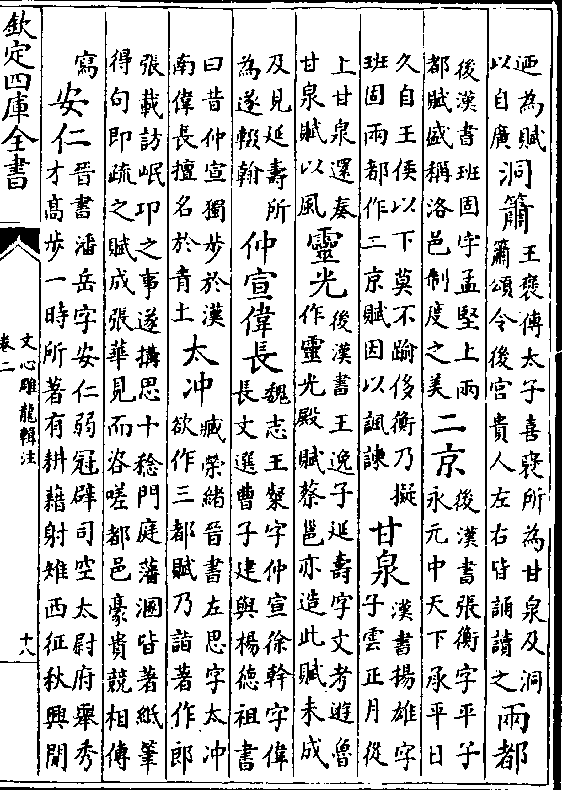 迺為賦
以自廣
洞簫
王襃傳太子喜襃所為甘泉及洞
簫頌令後宮貴人左右皆誦讀之
兩都
後漢書班固字孟堅上兩
都賦盛稱洛邑制度之美
二京
後漢書張衡字平子
永元中天下承平日
久自王侯以下莫不踰侈衡乃擬
班固兩都作二京賦因以諷諫
甘泉
漢書揚雄字
子雲正月從
上甘泉還奏
甘泉賦以風
靈光
後漢書王逸子延壽字文考遊魯
作靈光殿賦蔡邕亦造此賦未成
及見延壽所
為遂輟翰
仲宣偉長
魏志王粲字仲宣徐幹字偉
長文選曹子建與楊德祖書
曰昔仲宣獨步於漢
南偉長擅名於青土
太冲
臧榮緒晉書左思字太冲
欲作三都賦乃詣著作郎
張載訪岷卭之事遂搆思十稔門庭藩溷皆著紙筆
得句即疏之賦成張華見而咨嗟都邑豪貴競相傳
寫
安仁
晉書潘岳字安仁弱冠辟司空太尉府舉秀
才高步一時所著有耕藉射雉西征秋興閒
欽定四庫全書
文心雕龍輯注
卷二
十八